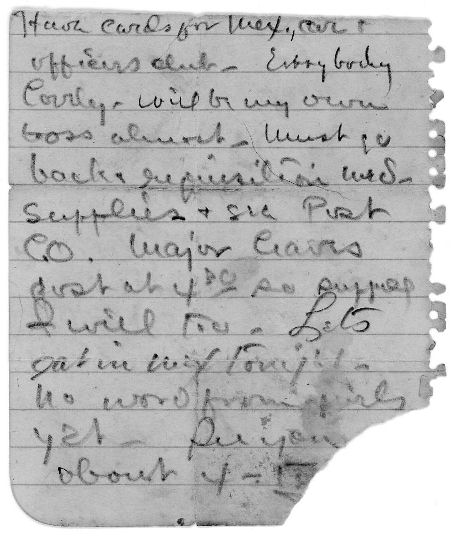 Have cards for Mex, car &
officers club - Everybody
lovely - will be my own
boss almost - Must go
back & requisition med -
supplies & see Post
CO. Major leaves
post at 4 30 so suppose
I will too - Lets
eat in Mex tonight -
No word from girls
yet - See you
about 4 -